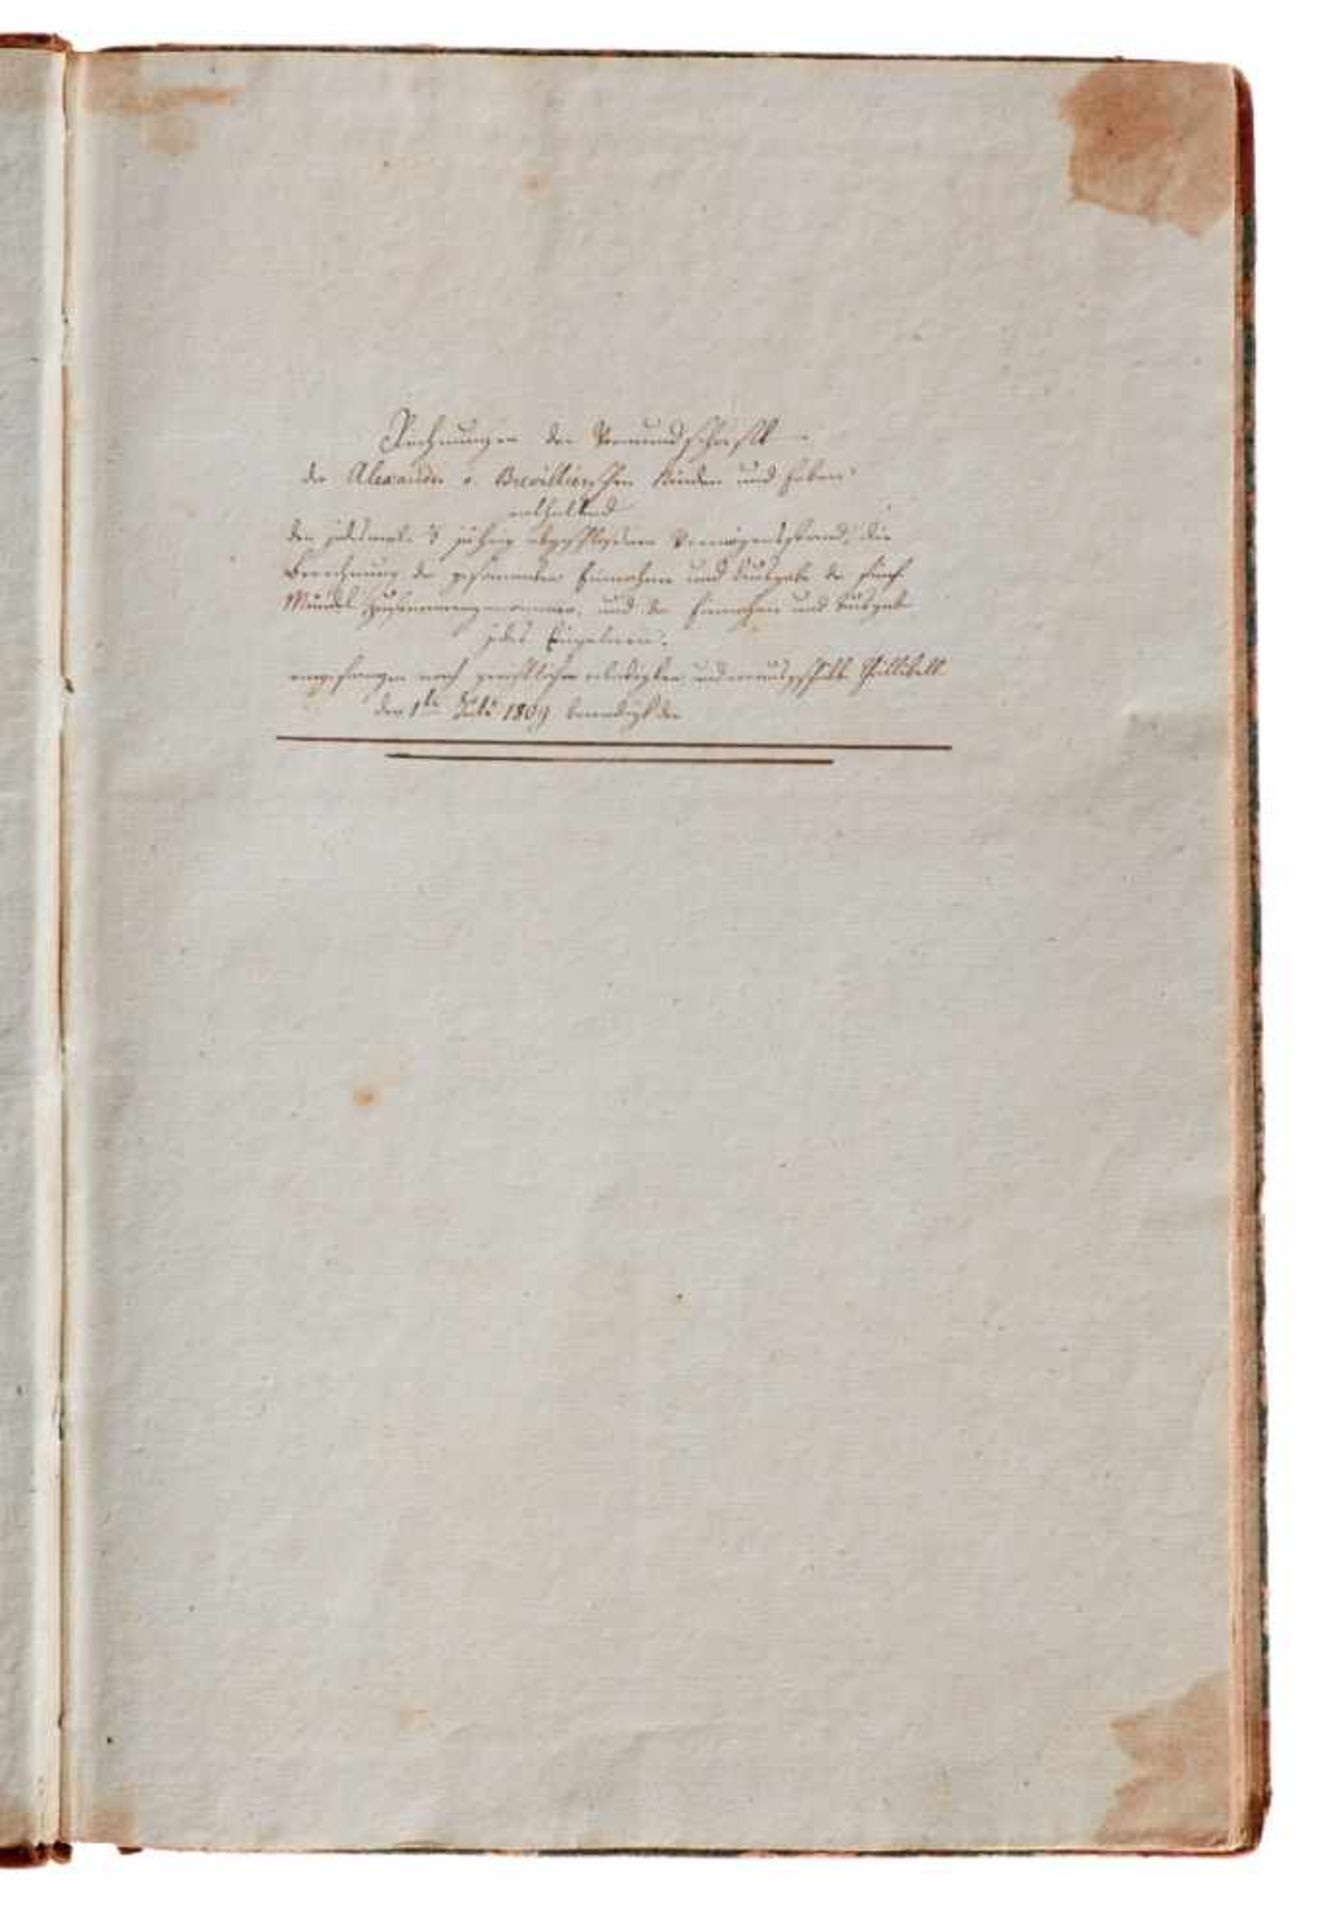 Rechnungen der Vormundschaft
der Alexander v. Brevillierschen Kinder und Erben
enthaltend
den jedesmal. jährig abgeschlossenen Vermögensstand, die
Berechnung der gesammten Einnahme und Ausgabe der fünf
Mündel zusammengenommen, und der Einnahme und Ausgab
jedes Einzelnen.
angefangen nach gerichtlicher
den 1ten Juli 1809 beendigt den